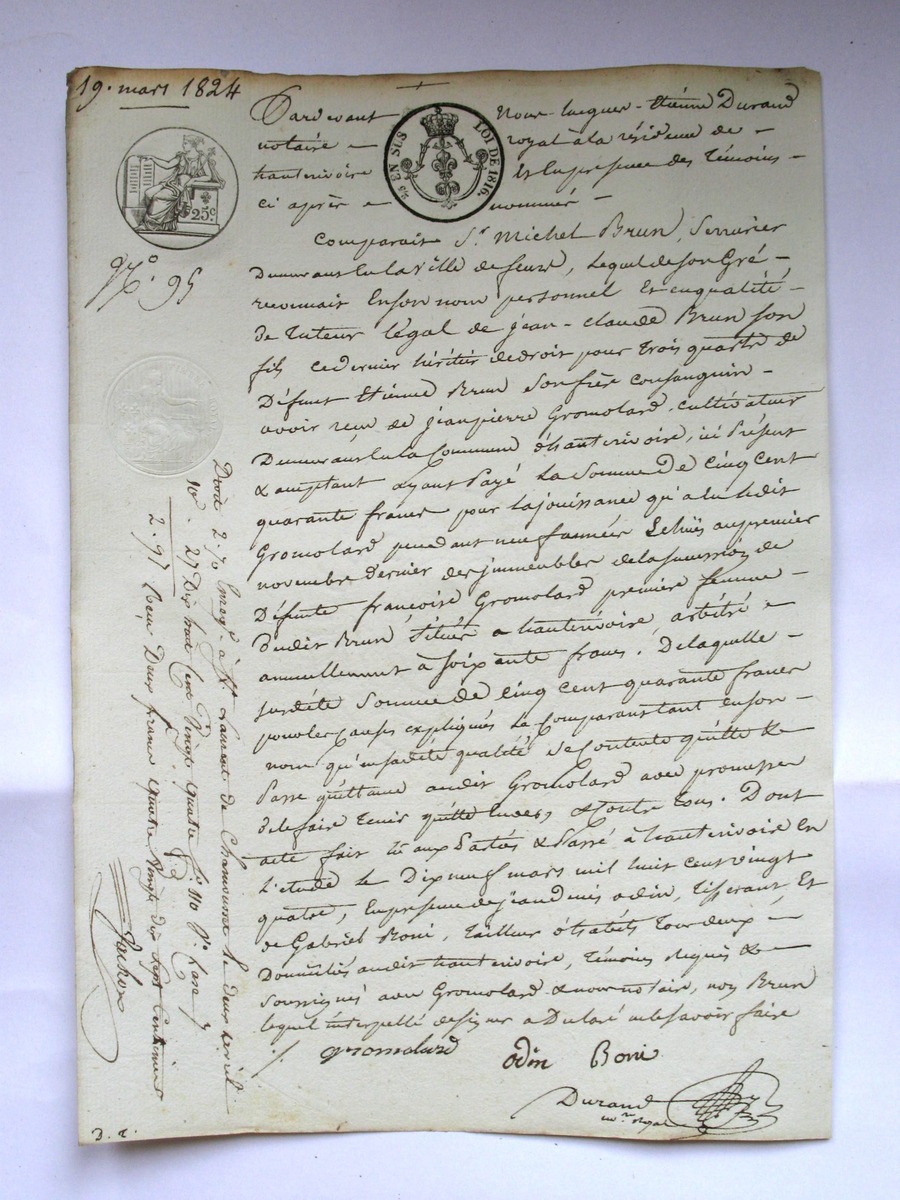 19. mars 1824
Pardevant Nous Jacques-Etiénne Durand
notaire royal à la résidence de
hauterivoire Et En présence des Témoins
ci après nommés
EN SUS LOI DE 1816.
25c.
N.o 95
Comparait Sr. Michel Brun, Serrurier
Demeurant En la ville de feurs, Lequel de son Gré
reconnait En son nom personnel Et en qualité
de Tuteur légal de jean-claude Brun son
fils ce dernier héritier de droit pour Trois quarts de
Défunt Etiénne Brun Son frère consanguin
avoir reçu de jeanpierre Gromolard cultivateur
Demeurant En la Commune d'hauterivoire, ici Présent
& acceptant ayant Payé La Somme De Cinq Cent
quarante francs pour la jouissance qu'a Eu ledit
Gromolard pendant neuf années Echües au premier
novembre Dernier des jmmeubles de la succession de
Défunte françoise Gromolard première femme
dudit Brun Situés a hauterivoire arbitré
annuellement à soixante francs. De laquelle
susdite Somme de Cinq Cent quarante francs
pour les causes expliquées Le Comparant tant en son
nom qu'en sadite qualité Se Contente quitte &
Passe quittance audit Gromolard avec promesse
de le faire Tenir quitte Envers & Contre Tous. Dont
acte fait lû aux Parties & Passé à hauterivoire En
l'etude le Dix neuf mars mil huit cent vingt
quatre, En présence de jean odin, Tisserant, Et
de Gabriel Boni, Tailleur d'habits Tous deux
Domiciliés audit hauterivoire, Témoins requis &
Soussignés avec Gromolard & nous notaire, non Brun
lequel interpellé de signer a Déclaré ne le savoir faire
gromolard odin Boni
Durand
nre. royal
Droit 2. 70 Enregé. à St. Laurent de Chamousset le deux avril
10e. 27 Dix huit Cent Vingt quatre fo. 110
2. 97 Reçu Deux francs quatre Vingt Dix Sept Centimes